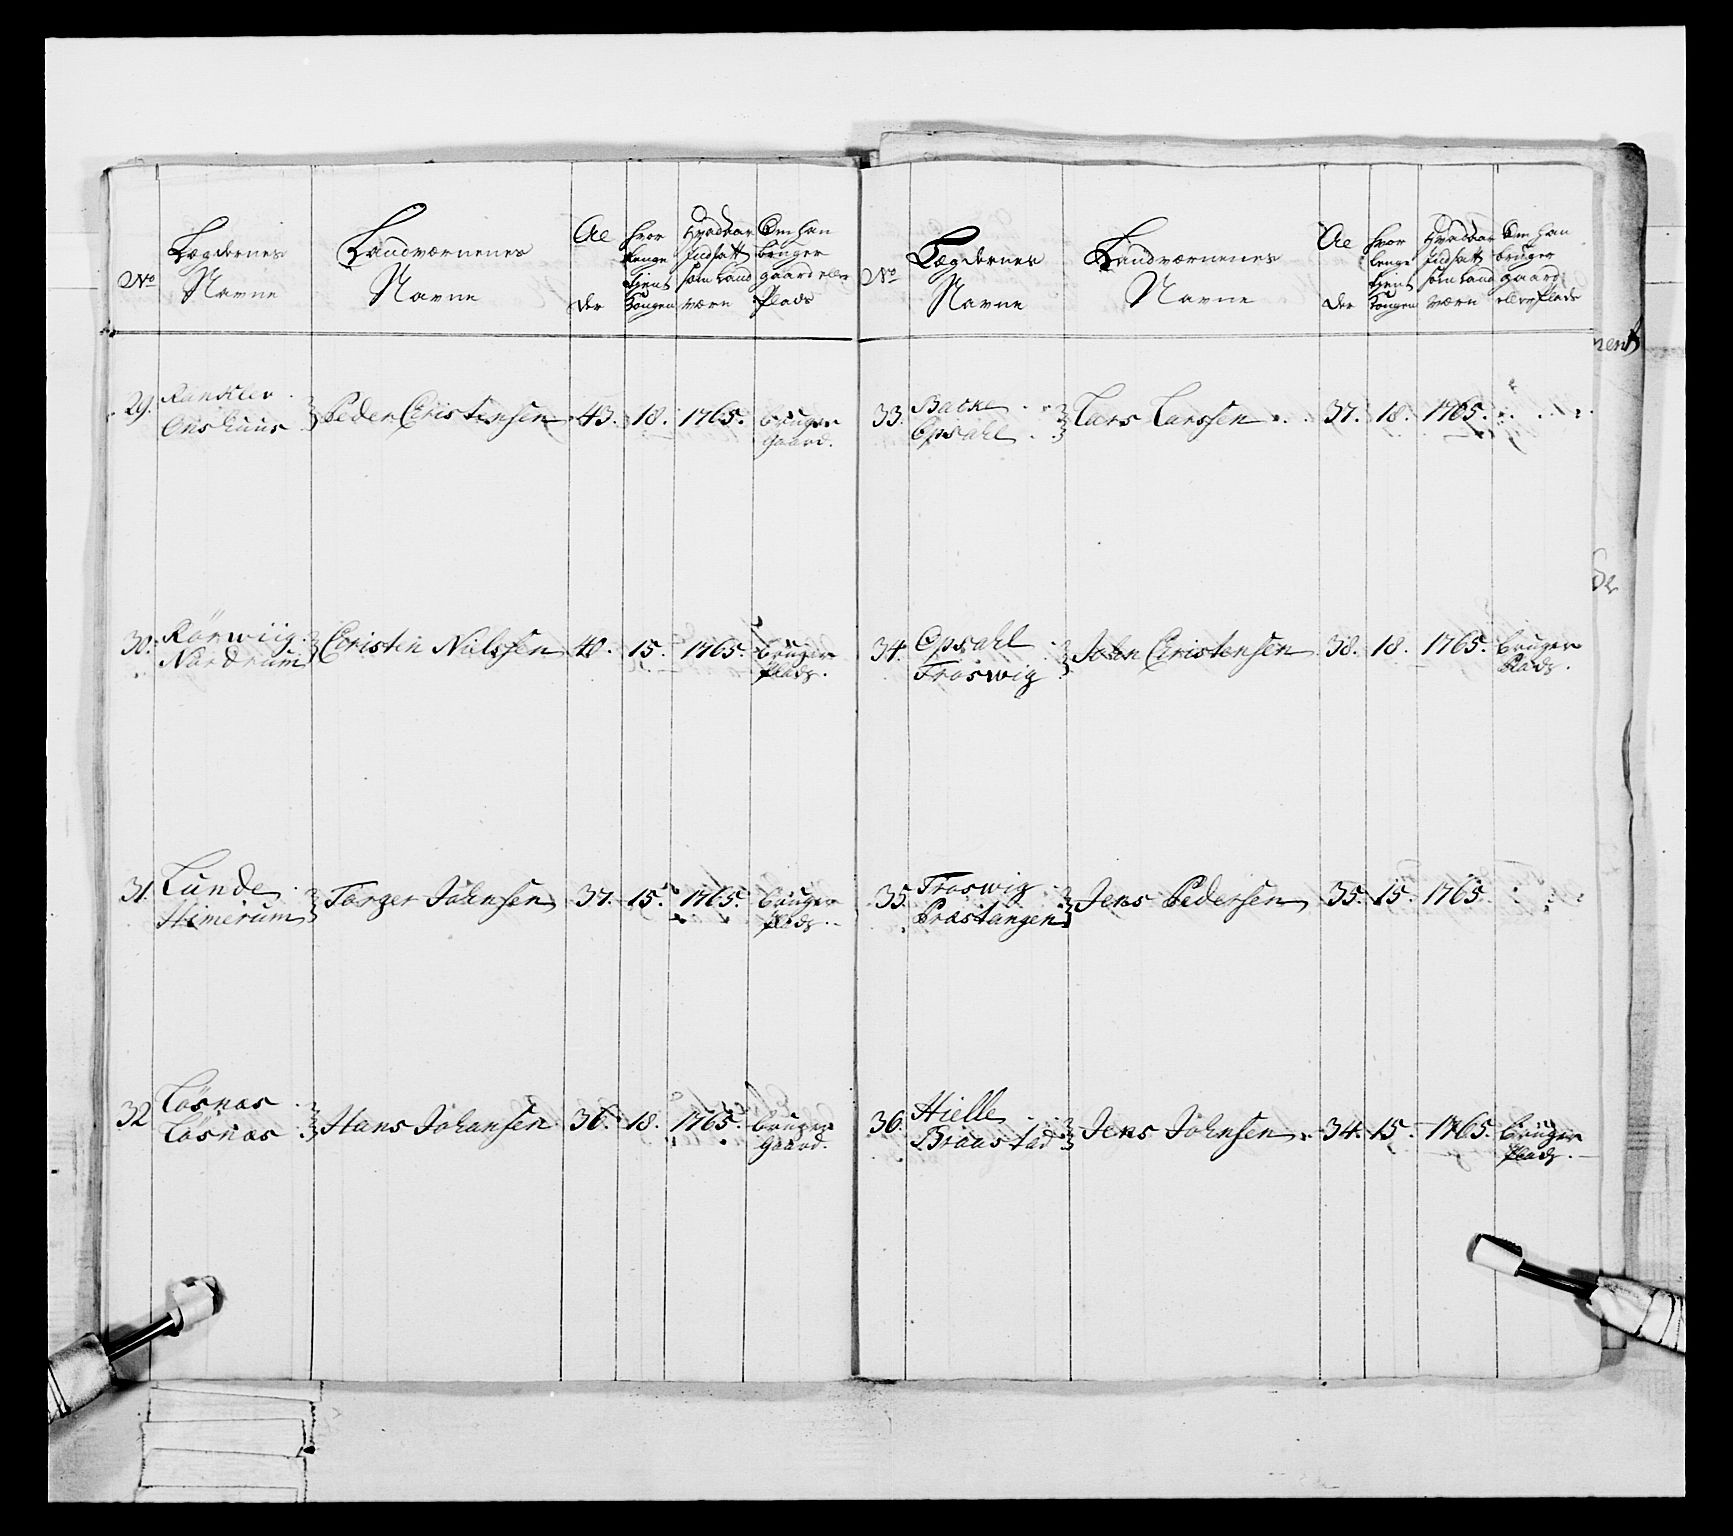 No
Lægdernes
Navne
Landværnenes
Navne
Al
der
hvor
længe
tient
Kongen
Hvad aar
Indsatt
som Land
værn
Om han
bruger
gaard eller
Plads
29. Ranklev
Onshuus
Peder Christensen 43. 18. 1765. bruger
gaard.
30. Rörwiig
Nardrum
Christen Nielssen 40. 15. 1765. bruger
Plads.
31. Lunde
Himerum
Torger Johnsen 37. 15. 1765. bruger
Plads.
32 Lösnæs
Lösnæs
Hans Johansen 36. 18. 1765. bruger
gaard.
No
Lægdernes
Navne
Landværnenes
Navne
Al
der
hvor
længe
tient
Kongen
Hvad aar
Indsatt
som Land
værn
Om han
bruger
gaard
eller Plads
33. Backe
Opsahl
Lars Larssen 37. 18. 1765.
34. Opsahl
Froswig
John Christensen 38. 18. 1765. bruger
Plads.
35. Froswig
Præstangen
Jens Pedersen 35. 15. 1765
36. Hielle
Braastad
Jens Johnsen 34. 15. 1765. bruger
Plads.